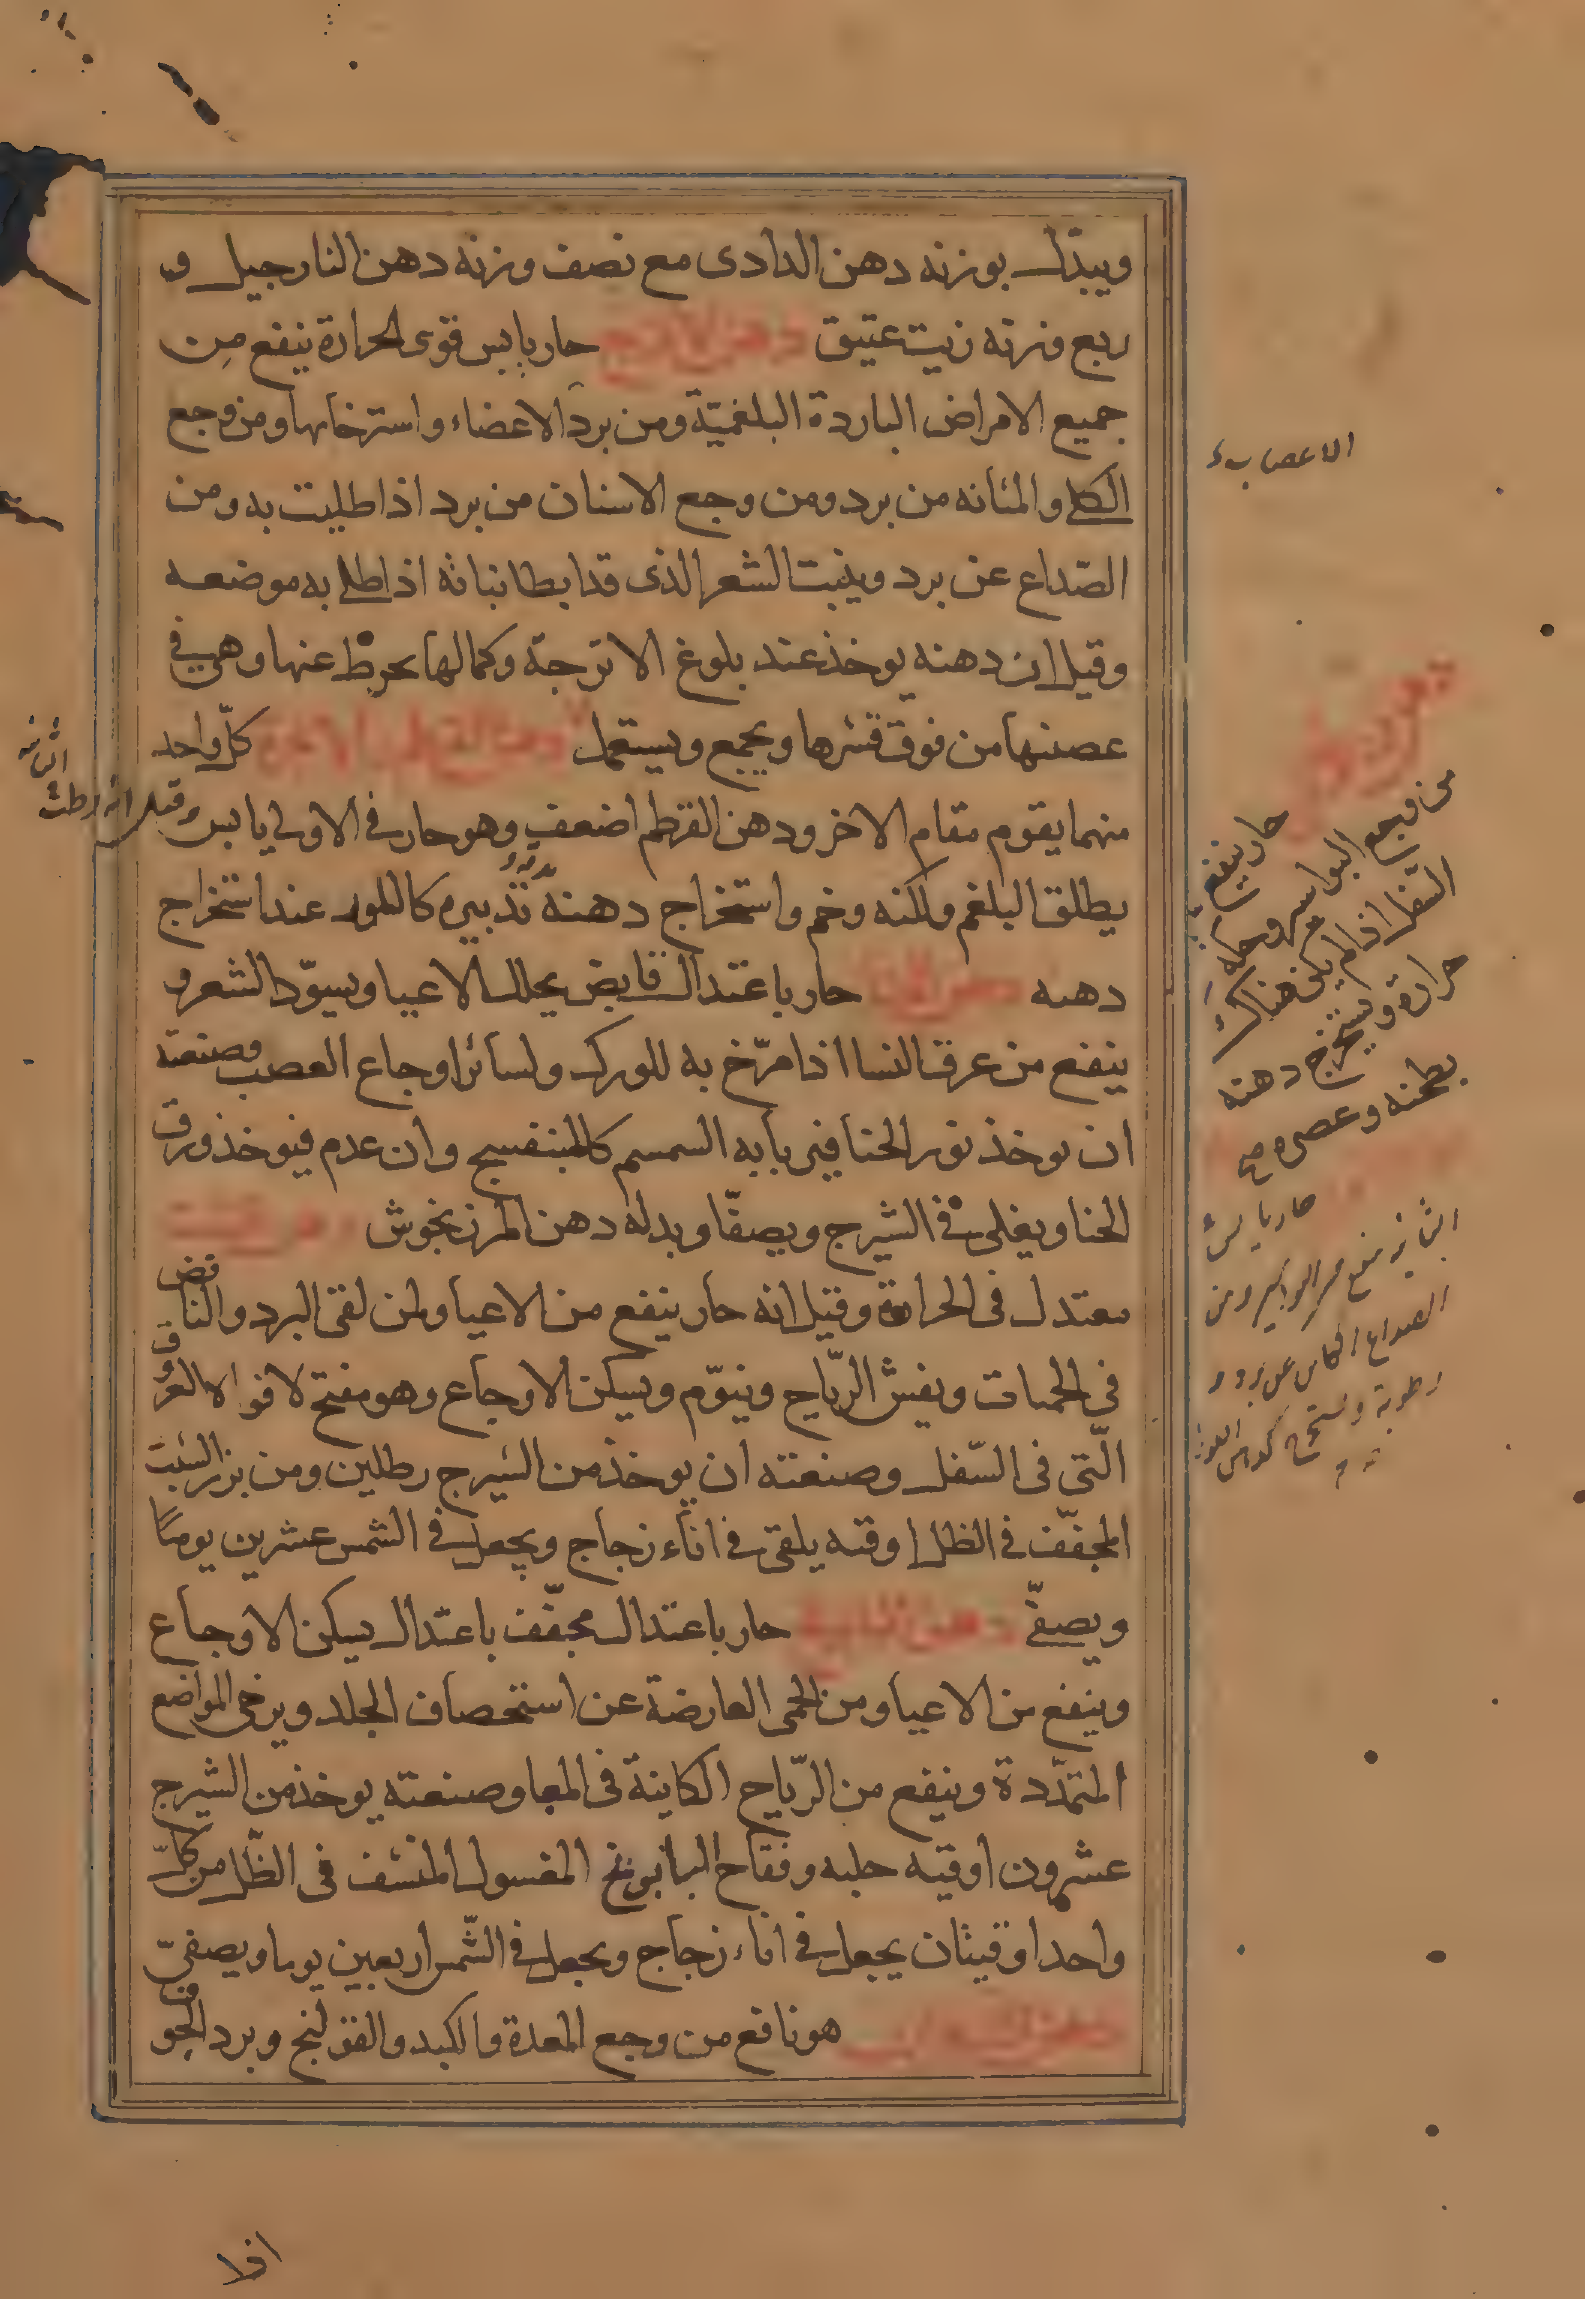 ويبدل بوزنه دهن الدادى مع نصف وزنه دهن النارجيل و
ربع وزنه زيت عتيق دهن الاترج حار يابس قوى الحرارة ينفع من
جميع الامراض الباردة البلغميّة ومن برد الاعضاء واسترخايها ومن وجع
الكلى والمثانه من برد ومن وجع الاسنان من برد اذا طليت به ومن
الصّداع عن برد وينبت الشعر الذى قد ابطا نباته اذا طلى به موضعه
وقيل ان دهنه يوخذ عند بلوغ الاترجة وكمالها يخرط عنها وهى فى
غصنها من فوق قشرها ويجمع ويستعمل دهن القرطم الانجرة كلّ واحد
منهما يقوم مقام الاخر ودهن القرطم اضعف وهو حار فى الاولى يابس
يطلق البلغم ولكنه وخم واستخراج دهنه تدبيره كاللوز عند استخراج
دهنه دهن الحنا حار باعتدال قابض يحلل الاعيا ويسوّد الشعر و
ينفع من عرق النسا اذا مرّخ به للورك ولسائر اوجاع العصب وصنعته
ان يوخذ نور الحنا فيربا به السمسم كالبنفسج وان عدم فيوخذ ورق
الحنا ويغلى فى الشيرج ويصفّا وبدله دهن المرزنجوش دهن الشبت
معتدل فى الحرارة وقيل انه حار ينفع من الاعيا ولمن لقى البرد والنافض
فى الحميات ويفش الرّياح وينوّم ويسكن الاوجاع وهو مفتح لافواه العروق
الّتى فى السّفل وصنعته ان يوخذ من الشيرج رطلين ومن بزر الشبت
المجفّف فى الظل اوقيه يلقى فى اناء زجاج ويجعل فى الشمس عشرين يومًا
ويصفّى دهن البابونج حار باعتدال مجفّف باعتدال يسكن الاوجاع
وينفع من الاعيا ومن الحمى العارضة عن استحصاف الجلد ويرخى المواضع
المتمدّدة وينفع من الرّياح الكاينة فى المعا وصنعته يوخذ من الشيرج
عشرون اوقيه حلبه وفقاح البابونج المغسول المنشف فى الظّل من كلّ
واحد اوقيتان يجعل فى اناء زجاج ويجعل فى الشّمس اربعين يوما ويصفىّ
هو نافع من وجع المعدة والكبد والقولنج وبرد الجوف
الاعصاب
وقيل انه رطب
الثانيه
حار ينفع
من وجع البواسير
الثفل اذا لم يكن هناك
حرارة ويستخرج دهنه
بطحنه وعصره صح
حار يابس
الثانيه ينفع من البواسير ومن
الصداع الكاين عن برد و
رطوبة ويستخرج كدهن اللوز
اذلا